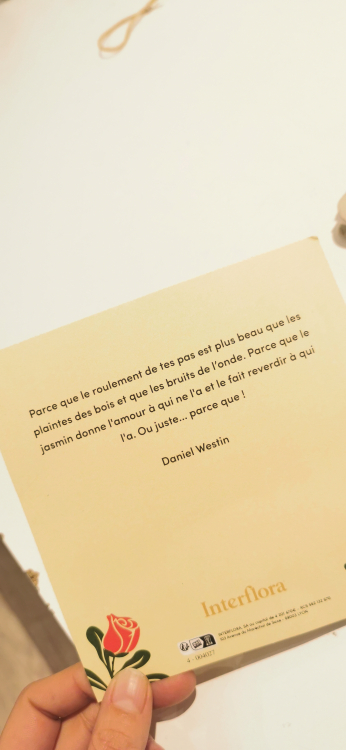 Parce que le roulement de tes pas est plus beau que les
plaintes des bois et que les bruits de l'onde. Parce que le
jasmin donne l'amour à qui ne l'a et le fait reverdir à qui
l'a. Ou juste... parce que !
Daniel Westin
Interflora